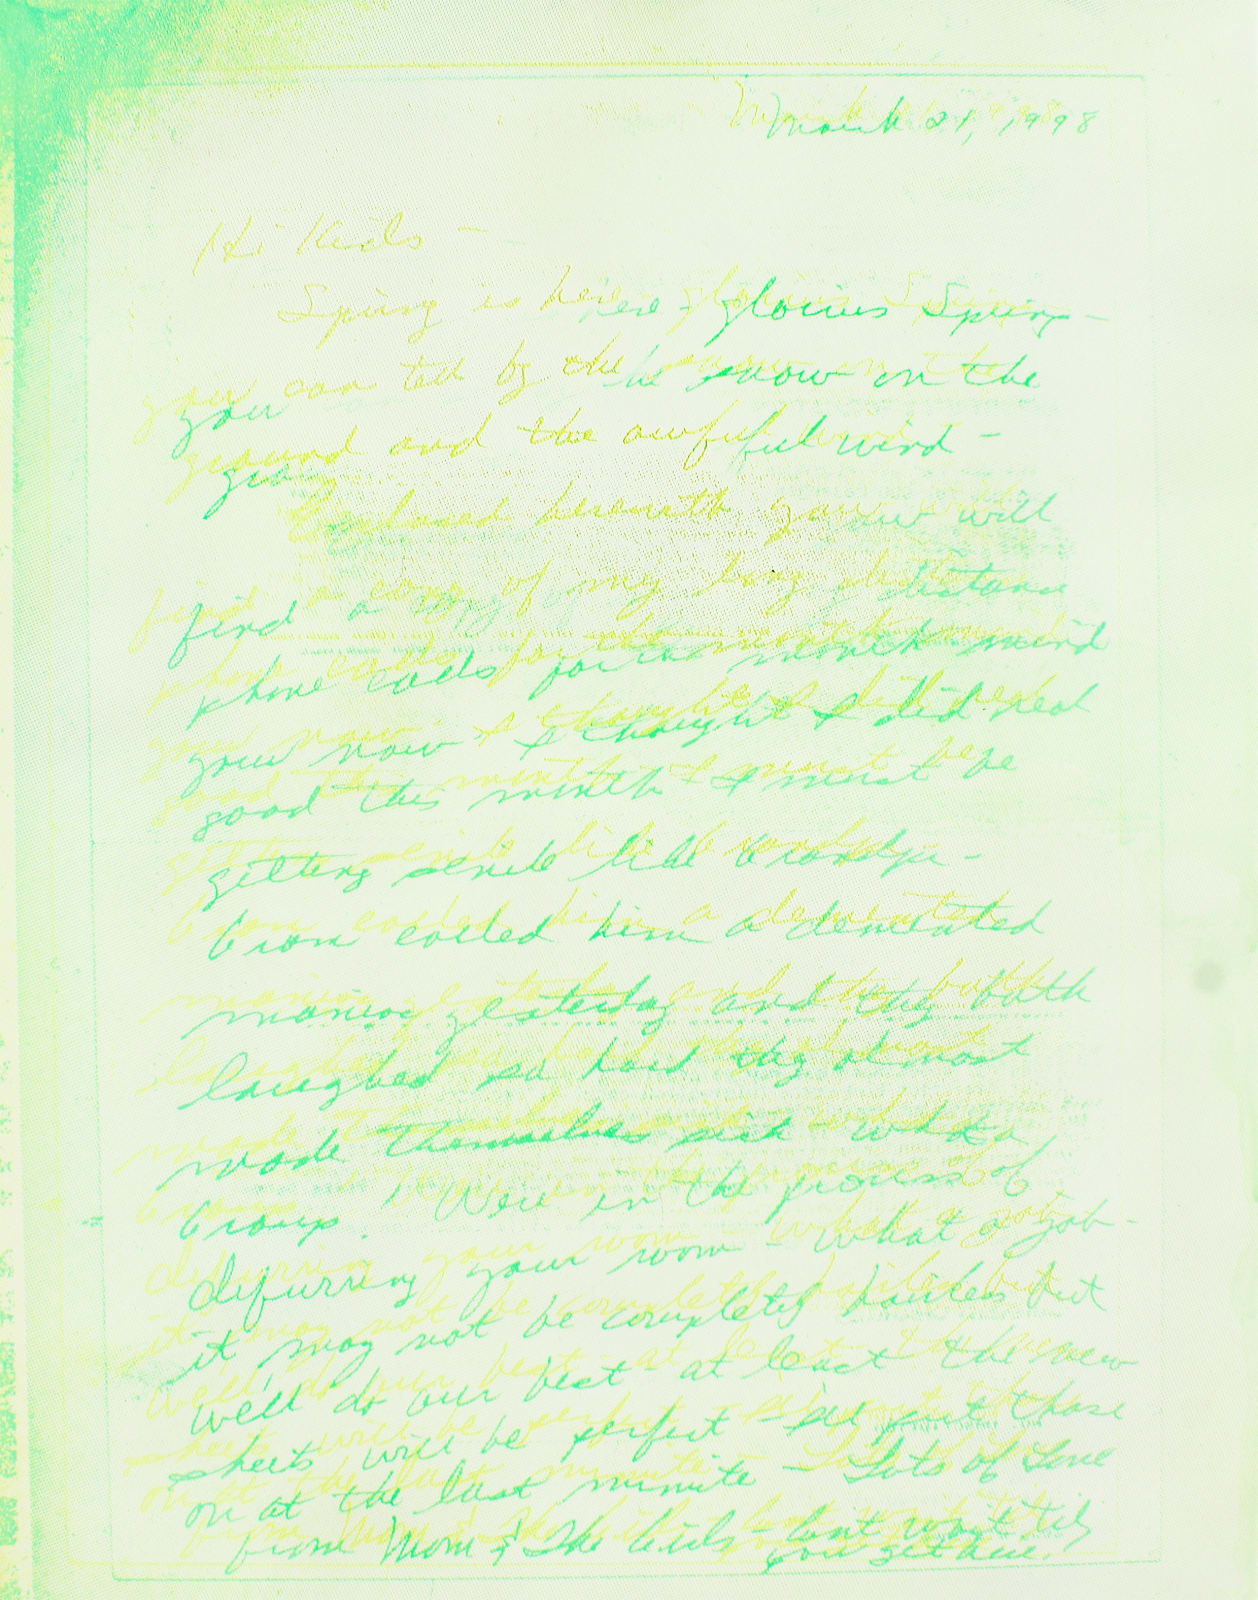 March 21, 1998
Hi Kids -
Spring is here - glorious Spring -
you can tell by the snow on the
ground and the awful wind -
Enclosed herewith you will
find a copy of my long distance
phone calls for the month mind
you now I thought I did real
good this month - I must be
getting senile like Grandpa -
Gram called him a demented
maniac yesterday and they both
laughed so hard they almost
made themselves sick - what a
Group! Were in the process of
defurring your room - what a job -
it may not be completely hairless but
well do our best - at least the new
sheets will be perfect I'll put those
on at the last minute - Lots of Love
from Mom & The kids - cant wait til
you get here.